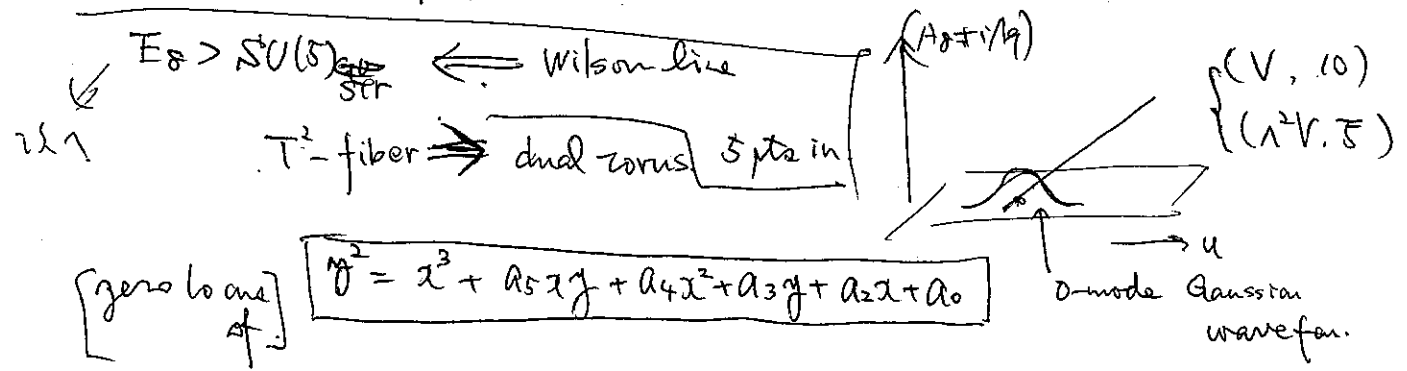 E₈ > SU(5)str ⇐ Wilson line
T²-fiber ⇒ dual torus 5 pts in
(V, 10)
(∧²V, 5̄)
[zero locus of] y² = x³ + a₅xy + a₄x² + a₃y + a₂x + a₀
u
0-mode Gaussian
wavefcn.